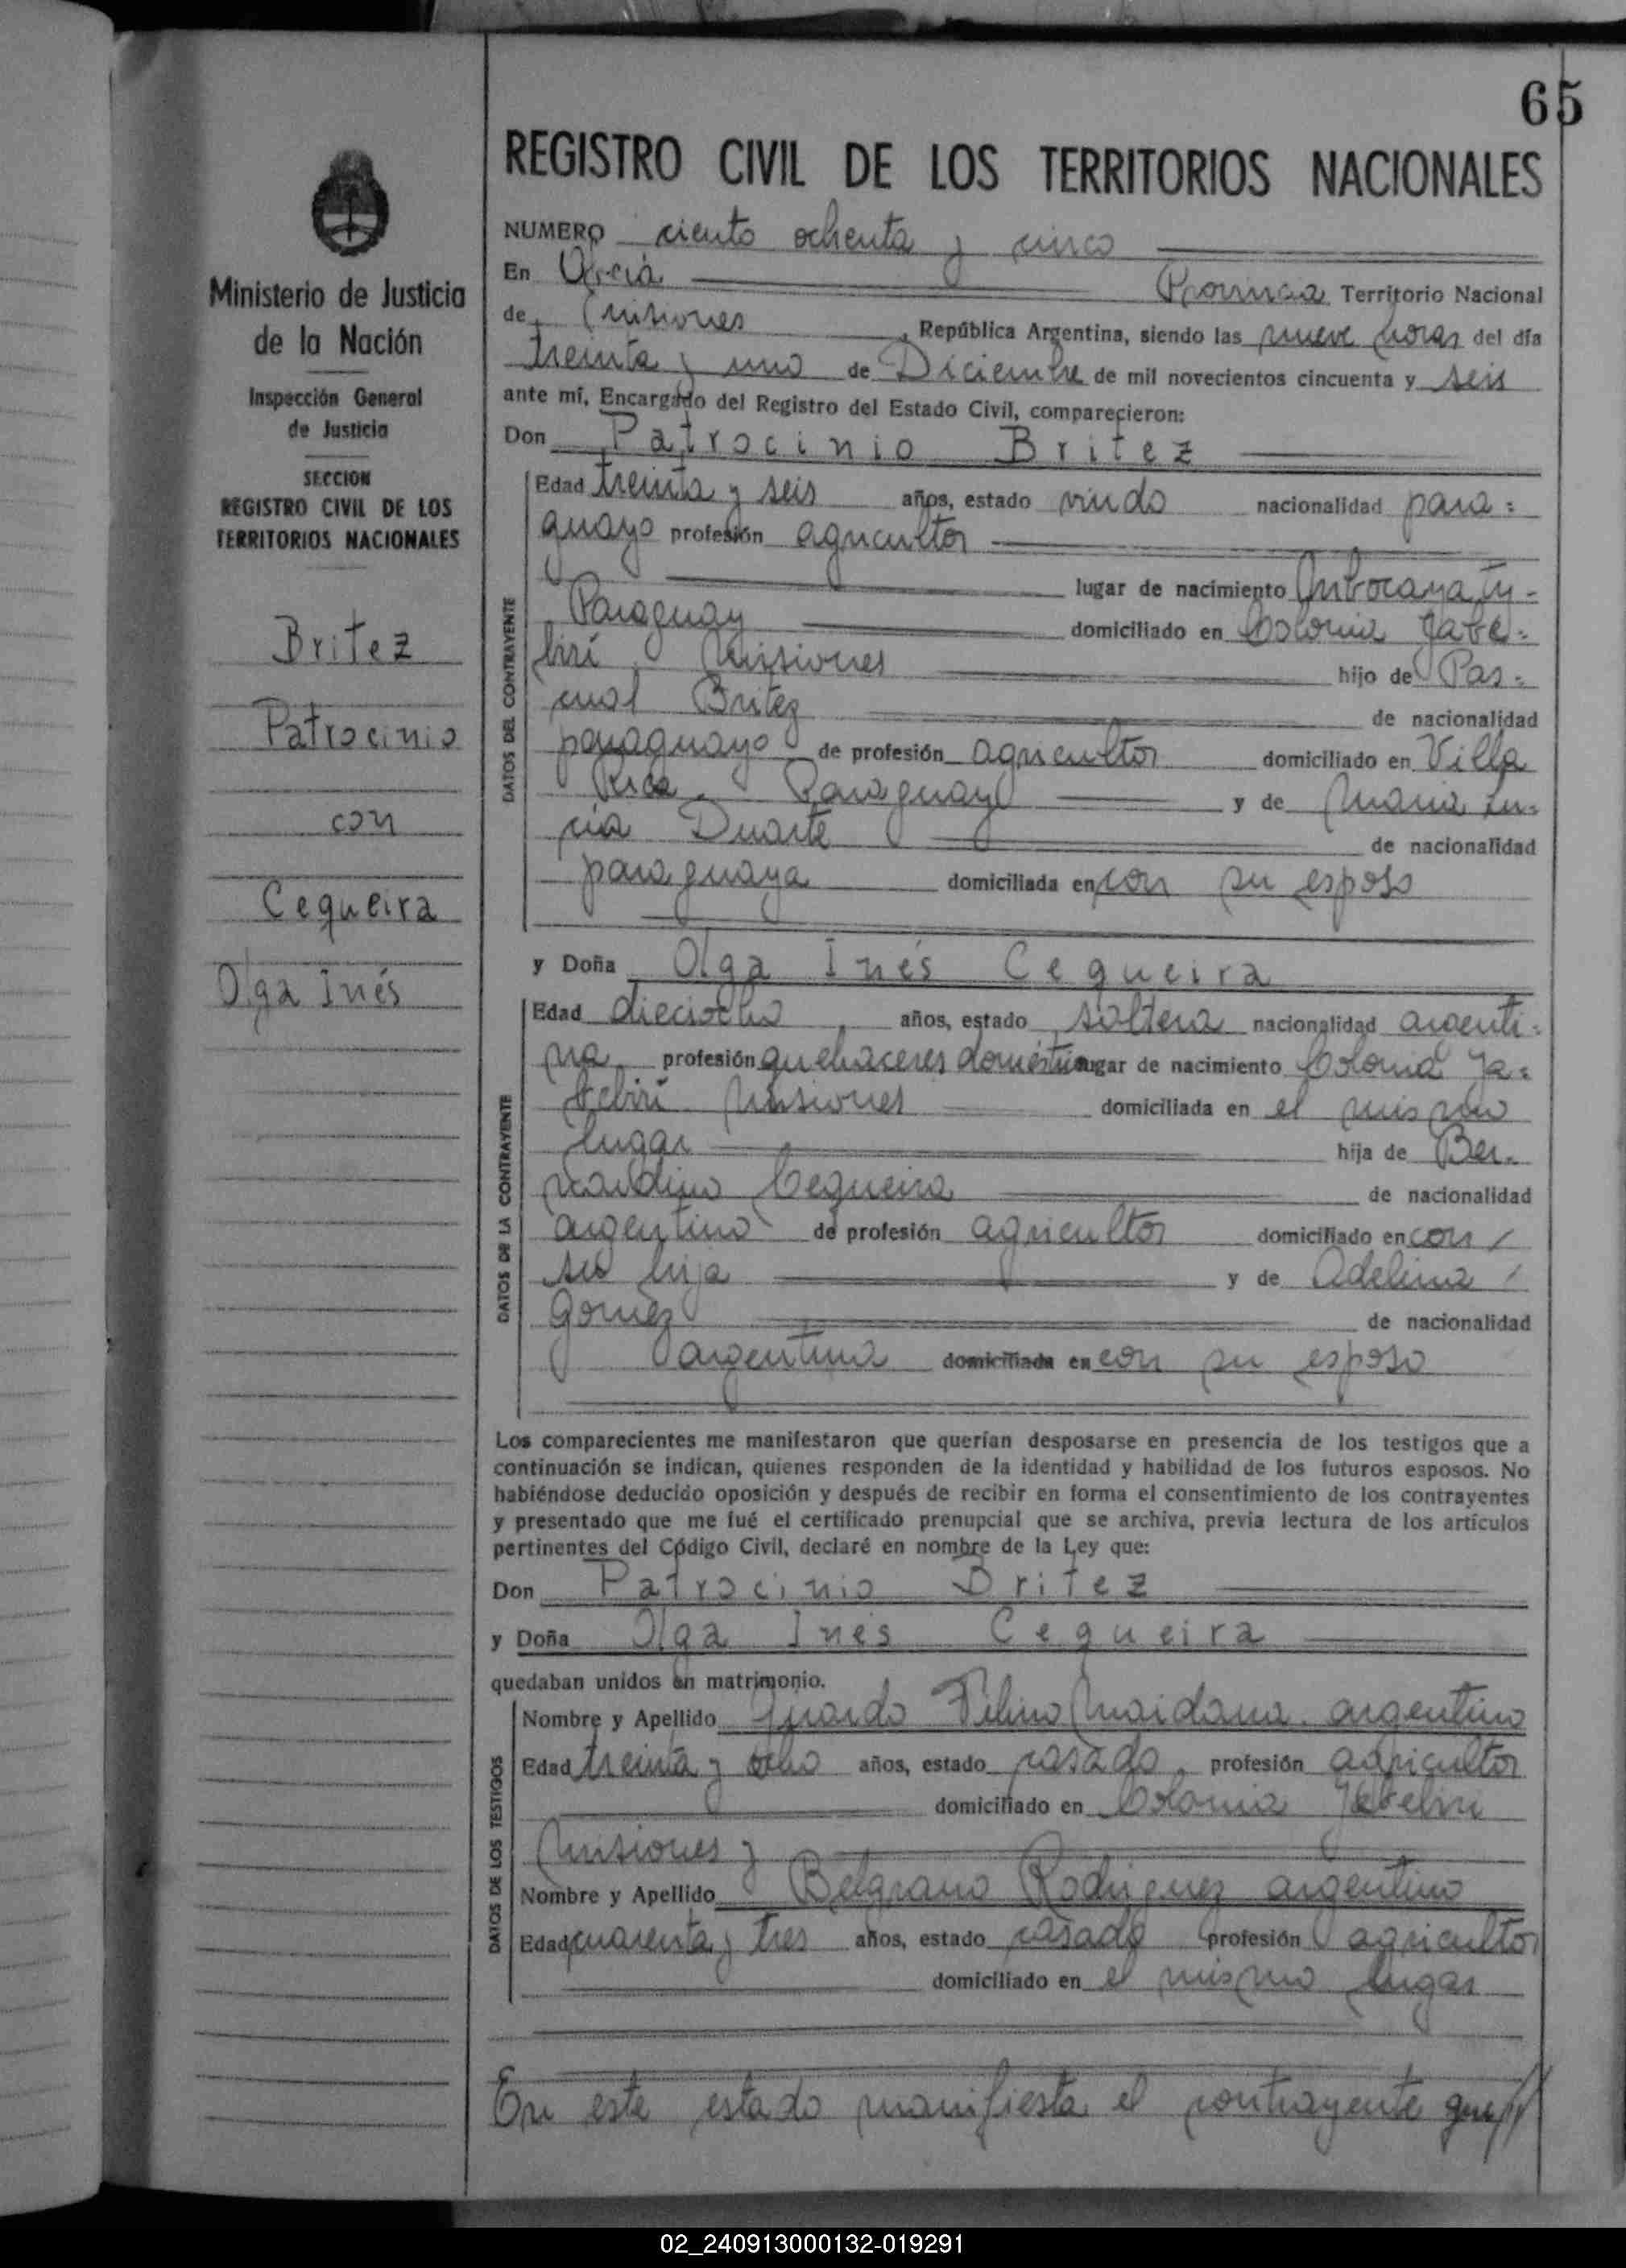 65
REGISTRO CIVIL DE LOS TERRITORIOS NACIONALES
Ministerio de Justicia
de la Nación
Inspección General
de Justicia
SECCION
REGISTRO CIVIL DE LOS
TERRITORIOS NACIONALES
Britez
Patrocinio
con
Cequeira
Olga Inés
NUMERO ciento ochenta y cinco
En
Provincia Territorio Nacional
de Misiones, República Argentina, siendo las nueve horas del día
treinta y uno de Diciembre de mil novecientos cincuenta y seis
ante mí, Encargado del Registro del Estado Civil, comparecieron:
Don Patrocinio Britez
DATOS DEL CONTRAYENTE
Edad treinta y seis años, estado viudo nacionalidad para=
guayo profesión agricultor
lugar de nacimiento Mbocayaty-
Paraguay domiciliado en Colonia Yabe=
birí Misiones hijo de Pas=
cual Britez de nacionalidad
paraguayo de profesión agricultor domiciliado en Villa
Rica. Paraguay y de Maria Lu=
cia Duarte de nacionalidad
paraguaya domiciliada en con su esposo
y Doña Olga Inés Cequeira
DATOS DE LA CONTRAYENTE
Edad dieciocho años, estado soltera nacionalidad argenti=
na profesión quehaceres domésticos lugar de nacimiento Colonia Ya=
bebirí Misiones domiciliada en el mismo
lugar hija de Ber=
nardino Cequeira de nacionalidad
argentino de profesión agricultor domiciliado en con /
su hija y de Adelina /
Gomez de nacionalidad
argentina domiciliada en con su esposo
Los comparecientes me manifestaron que querían desposarse en presencia de los testigos que a
continuación se indican, quienes responden de la identidad y habilidad de los futuros esposos. No
habiéndose deducido oposición y después de recibir en forma el consentimiento de los contrayentes
y presentado que me fué el certificado prenupcial que se archiva, previa lectura de los artículos
pertinentes del Código Civil, declaré en nombre de la Ley que:
Don Patrocinio Britez
y Doña Olga Inés Cequeira
quedaban unidos en matrimonio.
DATOS DE LOS TESTIGOS
Nombre y Apellido Maidana. argentino
Edad treinta y ocho años, estado casado, profesión agricultor
domiciliado en Colonia Yabebiri
Misiones y
Nombre y Apellido Belgrano Rodriguez argentino
Edad cuarenta y tres años, estado casado profesión agricultor
domiciliado en el mismo lugar
En este estado manifiesta el contrayente que//
02_240913000132-019291